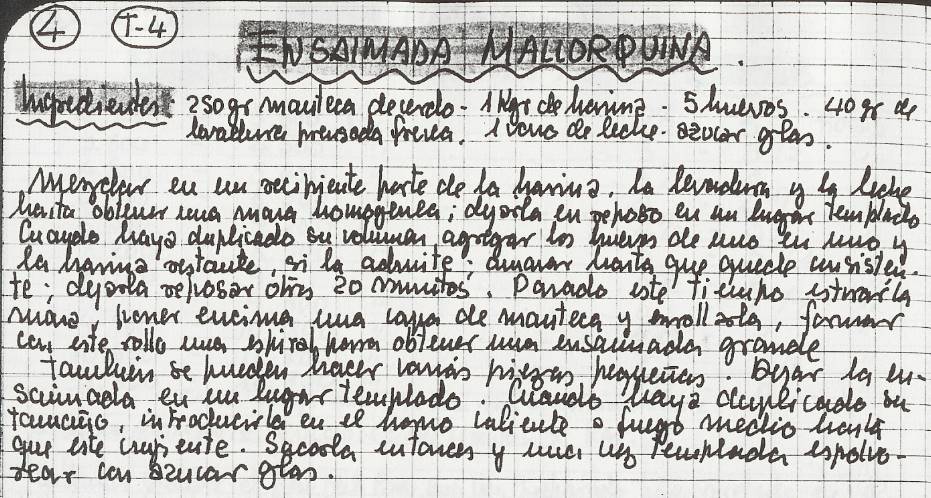 4 T-4
ENSAIMADA MALLORQUINA.
Ingredientes: 250 gr manteca de cerdo - 1 Kgr de harina - 5 huevos. 40 gr de
levadura prensada fresca. 1 vaso de leche - azucar glas.
Mezclar en un recipiente parte de la harina, la levadura y la leche
hasta obtener una masa homogenea; dejarla en reposo en un lugar templado
Cuando haya duplicado su volumen, agregar los huevos de uno en uno y
la harina restante, si la admite; amasar hasta que quede consisten-
te; dejarla reposar otros 20 minutos. Pasado este tiempo estirar la
masa, poner encima una capa de manteca y enrollarla, formar
con este rollo una espiral para obtener una ensaimada grande
Tambien se pueden hacer varias piezas pequeñas. Dejar la en-
saimada en un lugar templado. Cuando haya duplicado su
tamaño, introducirla en el horno caliente a fuego medio hasta
que este crujiente. Sacarla entonces y una vez templada espolvo-
rear con azucar glas.